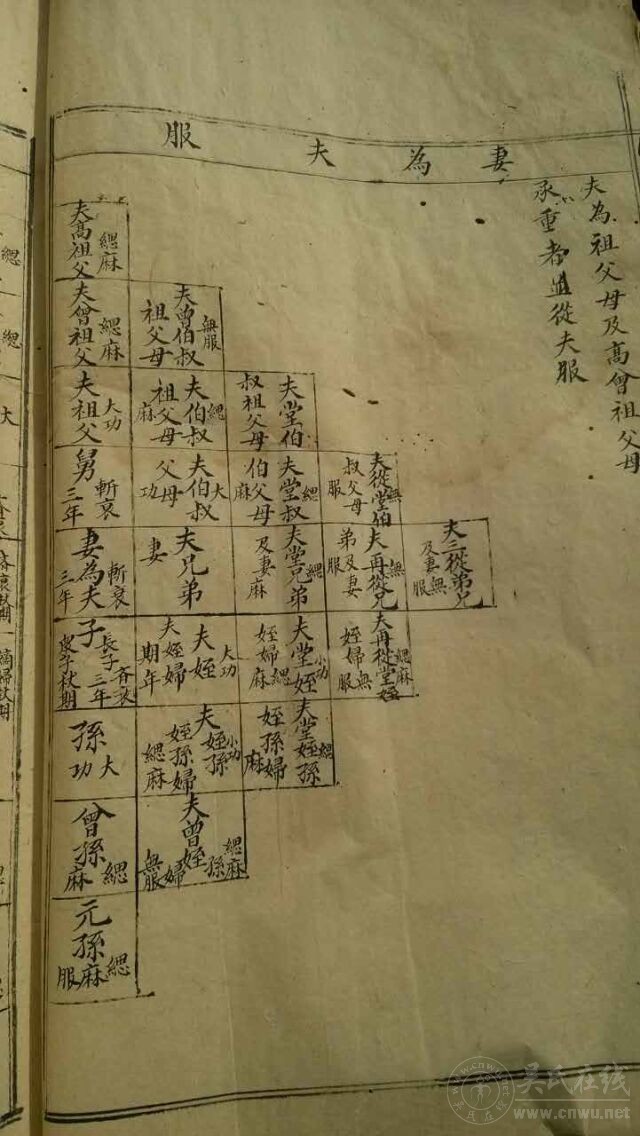 妻為夫服
夫為祖父母及高曾祖父母
承重者並從夫服
夫高祖父 緦麻
夫曾祖父 緦麻
夫曾伯叔祖父母 無服
夫祖父 大功
夫伯叔祖父母 緦麻
夫堂伯叔祖父母
舅 斬衰三年
夫伯叔父母 大功
夫堂叔伯父母 緦麻
夫從堂伯叔父母 無服
妻為夫 斬衰三年
夫兄弟妻
夫堂兄弟及妻 緦麻
夫再從兄弟及妻 無服
夫三從弟兄及妻 無服
子 長子齊衰三年 衆子杖期
夫姪 大功 夫姪婦 期年
夫堂姪 小功 姪婦 緦麻
夫再從堂姪 緦麻 姪婦 無服
孫 大功
夫姪孫 小功 姪孫婦 緦麻
夫堂姪孫 姪孫婦 緦麻
曾孫 緦麻
夫曾姪孫 緦麻 婦 無服
元孫 緦麻服
吴氏在线
www.cnwu.net